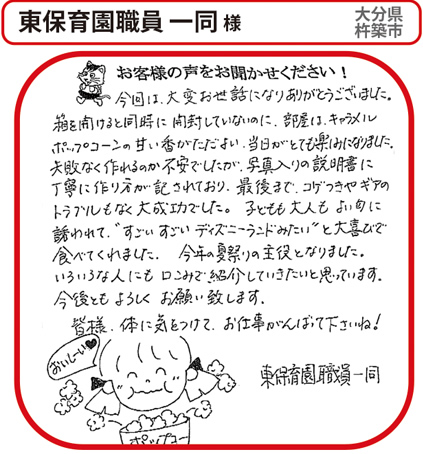 東保育園職員 一同 様
大分県
杵築市
お客様の声をお聞かせください！
今回は、大変お世話になりありがとうございました。
箱を開けると同時に 開封していないのに、部屋は、キャラメル
ポップコーンの甘い香がただよい、当日がとても楽しみになりました。
失敗なく作れるのか不安でしたが、写真入りの説明書に
丁寧に作り方が記されており、最後まで、コゲつきやギアの
トラブルもなく大成功でした。子どもも大人もよい匂に
誘われて、"すごいすごいディズニーランドみたい"と大喜びで
食べてくれました。 今年の夏祭りの主役となりました。
いろいろな人にも口コミで、紹介していきたいと思っています。
今後ともよろしくお願い致します。
皆様、体に気をつけて、お仕事がんばって下さいね！
おいしーい♥
東保育園職員一同
ポップコー